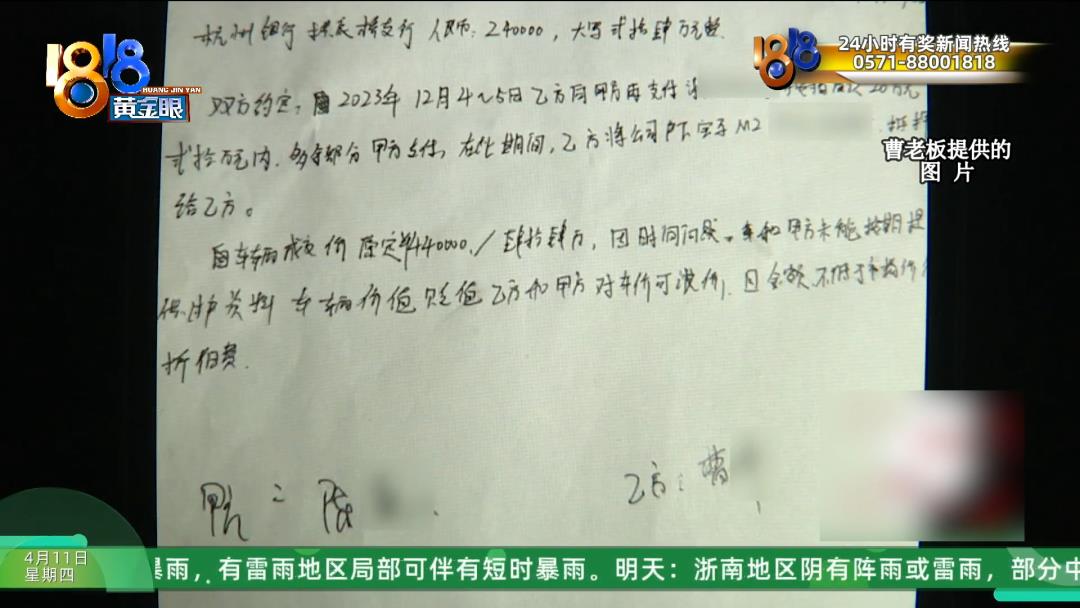 杭州银行 支行 人民币：240000，大写贰拾肆万元整.
1818
HUANG JIN YAN
黄金眼
24小时有奖新闻热线
0571-88001818
双方约定，自2023年12月4~5日乙方同甲方再支付
贰拾万元内，多余部分甲方支付，在此期间，乙方将公司 宝马M2
曹老板提供的
图 片
给乙方。
自车辆成交价原定440000/肆拾肆万，因时间问题，车和甲方未能按期提
供 资料 车辆价值贬值 乙方和甲方对车价可议价，且金额不低于市场价
折旧费.
甲方：陈
乙方：曹
4月11日
星期四
暴雨，有雷雨地区局部可伴有短时暴雨。明天：浙南地区阴有阵雨或雷雨，部分中